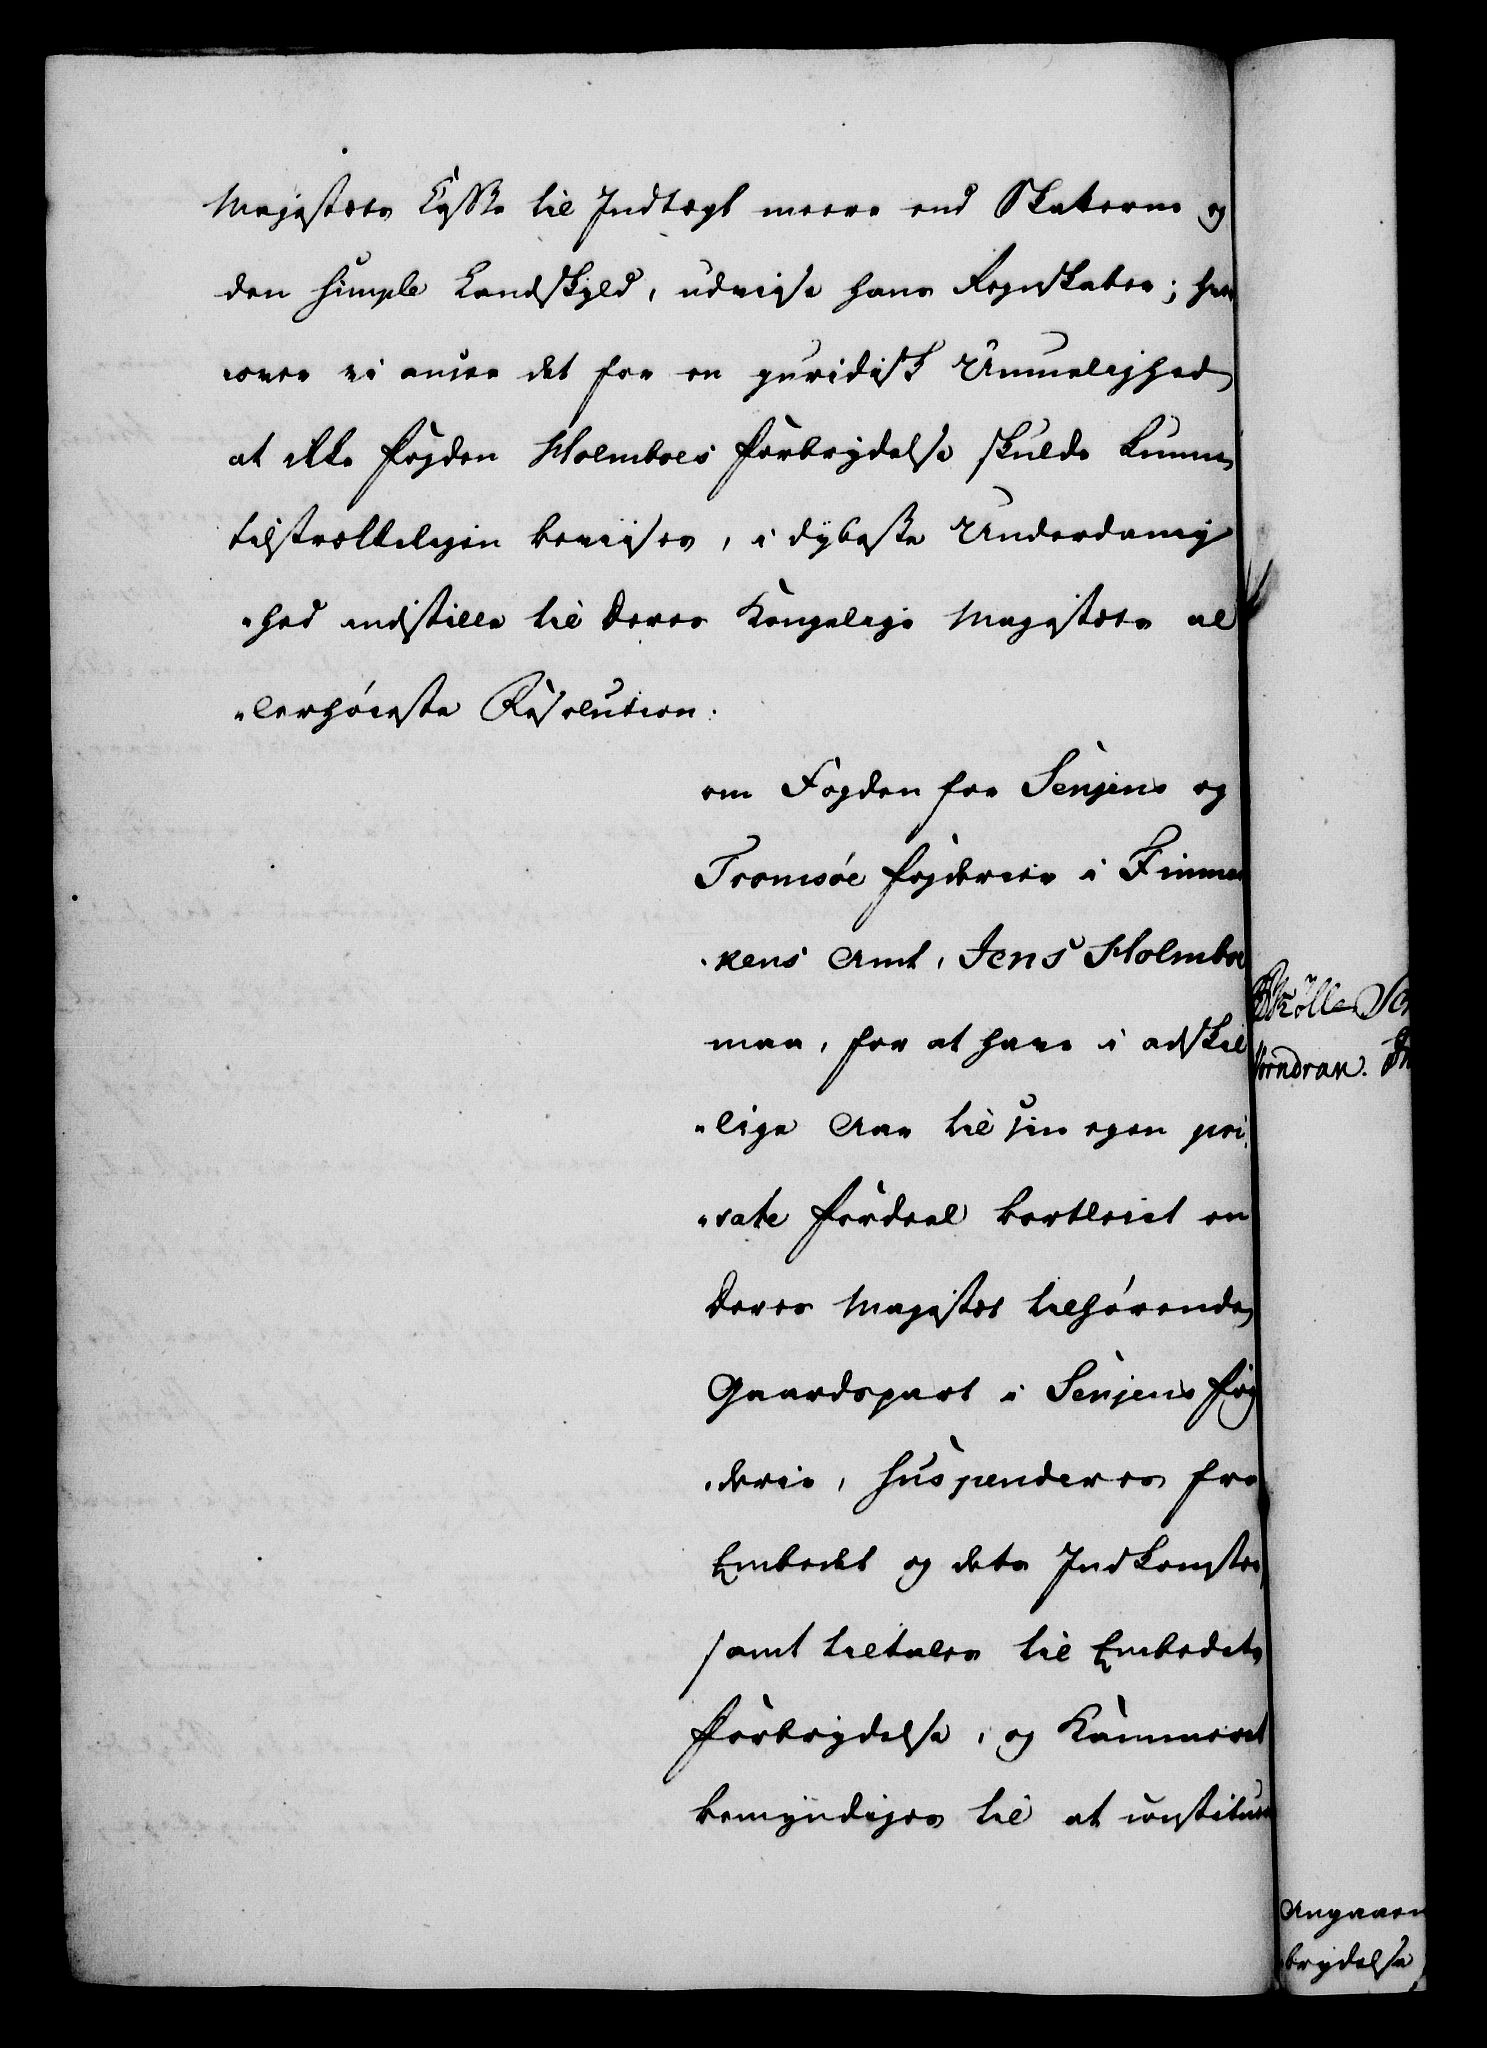 Majestets Casse til Indtægt meere end Skaterne og
den simple Landskyld, udviise hans Regnskaber; hvor
over vi ansee det for en juridisk Umuelighed
at ikke Fogden Holmboes Forbrydelse skulde kunne
tilstrækkeligen beviises, i dybeste Underdanig
„hed indstille til Deres Kongelige Majestets al
„lerhøieste Resolution:
om Fogden for Senjens og
Tromsøe Fogderier i Finmar
„kens Amt, Jens Holmboe
maa, for at have i adskil
„lige Aar til sin egen pri
„vate Fordeel bortleiet en
Deres Majestet tilhørende
Gaardspart i Senjens Fog
„derie, suspenderes fra
Embedet og dets Indkomster
samt tiltales til Embedets
Forbrydelse, og Kammeret
bemyndiges til at constitue
Skölle
Vorndran.
Angaaen
brydelse